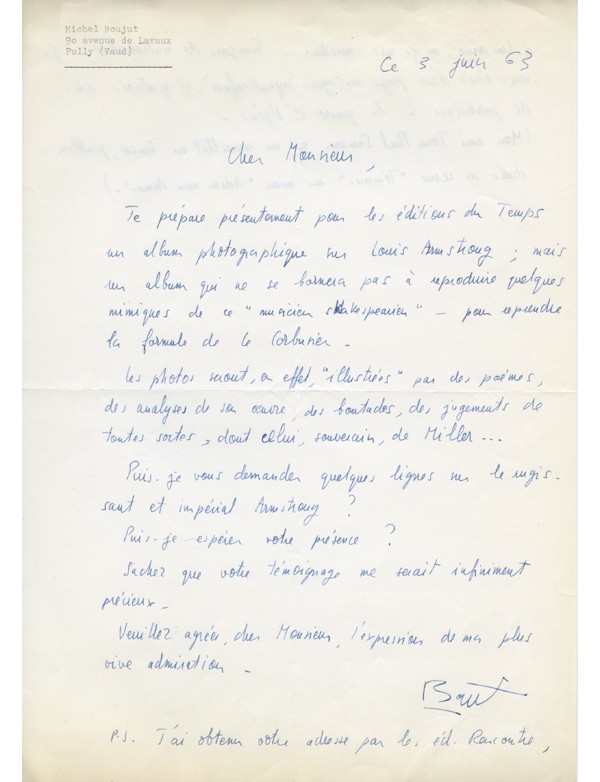 Michel Boujut
90 avenue de Lavaux
Pully (Vaud)
Ce 3 juin 63
Cher Monsieur,
Je prépare présentement pour les éditions du Temps
un album photographique sur Louis Armstrong ; mais
un album qui ne se bornera pas à reproduire quelques
mimiques de ce "musicien shakespearien" – pour reprendre
la formule de Le Corbusier.
Les photos seront, en effet, "illustrées" par des poèmes,
des analyses de son œuvre, des boutades, des jugements de
toutes sortes, dont celui, souverain, de Miller...
Puis-je vous demander quelques lignes sur le rugis-
sant et impérial Armstrong ?
Puis-je espérer votre présence ?
Sachez que votre témoignage me serait infiniment
précieux.
Veuillez agréer, cher Monsieur, l'expression de ma plus
vive admiration.
P.S. J'ai obtenu votre adresse par les éd. Rencontre,